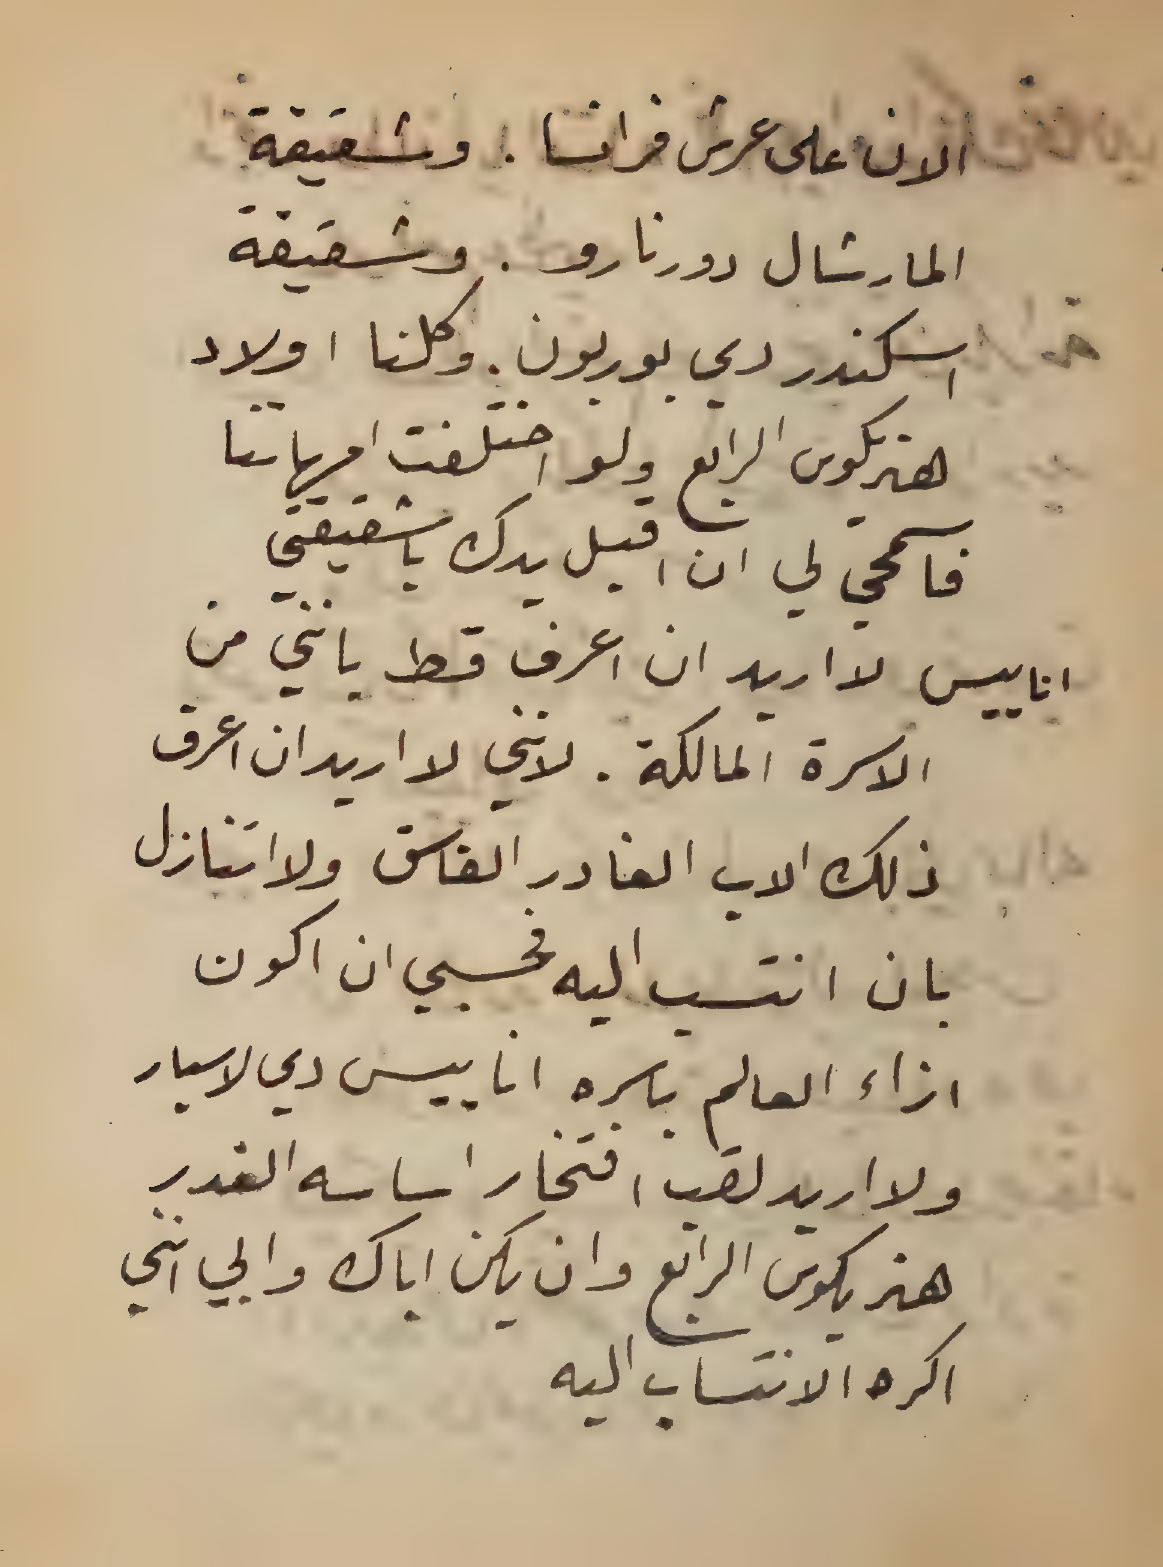 الان على عرش فرانسا . وشقيقة
المارشال دورنارو . وشقيقة
اسكندر دي بوربون . وكلنا اولاد
هنريكوس الرابع ولو اختلفت امهاتنا
فاسمحي لي ان اقبل يدك يا شقيقتي
اناييس لا اريد ان اعرف قط بانني من
الاسرة المالكة . لانني لا اريد ان اعرف
ذلك الاب الغادر الفاسق ولا اتنازل
بان انتسب اليه فحسبي ان اكون
ازاء العالم باسره اناييس دي لاسيار
ولا اريد لقب افتخار اساسه الغدر
هنريكوس الرابع وان يكن اباك وابي انني
اكره الانتساب اليه